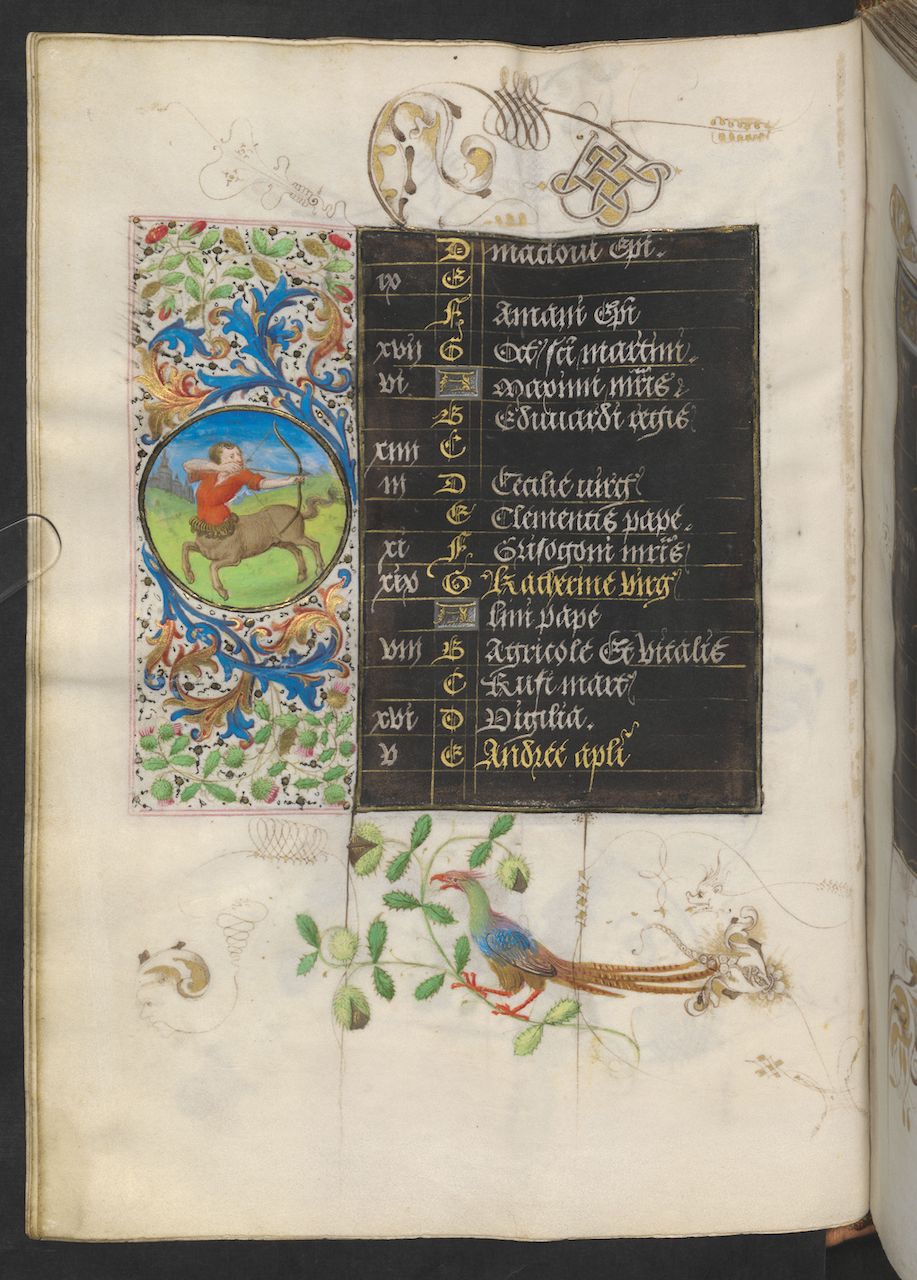 D macloui Epi.
ix E
F Amani Epi
xvii G Oct sci martini.
vi A Maximi mris
B Eduuardi regis
xiiii C
iii D Cecilie uirg
E Clementis pape.
xi F Grisogoni mris
xix G Katherine virg
A Lini pape
viii B Agricole Et vitalis
C Rufi mart
xvi D Vigilia.
v E Andree apli